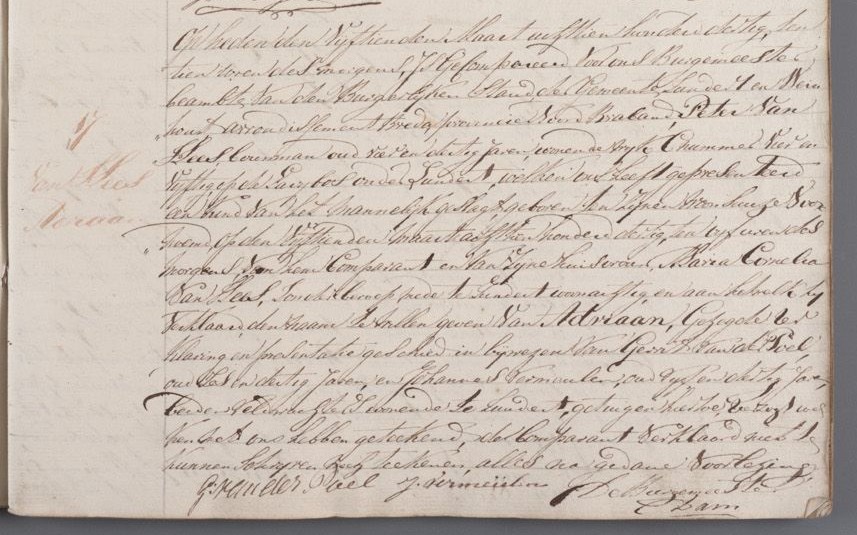 Op heden den vijftienden Maart achttien honderd dertig, ten
tien uren des morgens, is Gecompareerd voor ons Burgemeester
beambte van den Burgerlijken Stand der Gemeente Zundert en Wern
hout, arrondissement Breda provincie Noord Braband, Peter Van
Hees, bouwman oud vier en dertig Jaren, wonende wyk C nummer vier en
vyftig onder Zundert, welken ons heeft gepresenteerd
een kind van het Mannelijk geslagt, geboren in zynen woonhuize voor
noemd op den vyftienden maart achttien honderd dertig, ten vyf uren des
morgens, van hem Comparant en van zyne huisvrouw, Maria Cornelia
Van Hees, zonder beroep mede te Zundert woonachtig, en aan hetwelk hy
verklaard den naam te willen geven van Adriaan, Gezegde ver
klaring en presentatie geschied in bywezen van Gerrit Van der Poel,
oud zes en dertig Jaren, en Johannes Vermeulen, oud en dertig Jaren,
beiden veldwachters wonende te Zundert, getuigen
ken met ons hebben geteekend, de Comparant verklaard niet te
kunnen schryven nog teekenen, alles na gedane voorlezing
G. van der Poel J. Vermeulen De Burgemeester
Dam
17
Van Hees
Adriaan